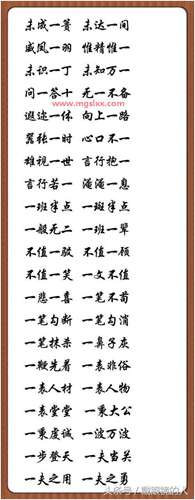 未成一篑 未达一间
威风一羽 惟精惟一
未识一丁 未知万一
问一答十 无一不备
www.mgslxx.com
遐迩一体 向上一路
嚣张一时 心口不一
雄视一世 言行抱一
言行若一 淹淹一息
一班半点 一斑半点
一般无二 一班一辈
不值一驳 不值一顾
不值一笑 一文不值
一悲一喜 一笔不苟
一笔勾断 一笔勾消
一笔抹杀 一鼻子灰
一鞭先着 一表非俗
一表人材 一表人物
一表堂堂 一秉大公
一秉虔诚 一波万波
一步登天 一夫当关
一夫之用 一夫之勇